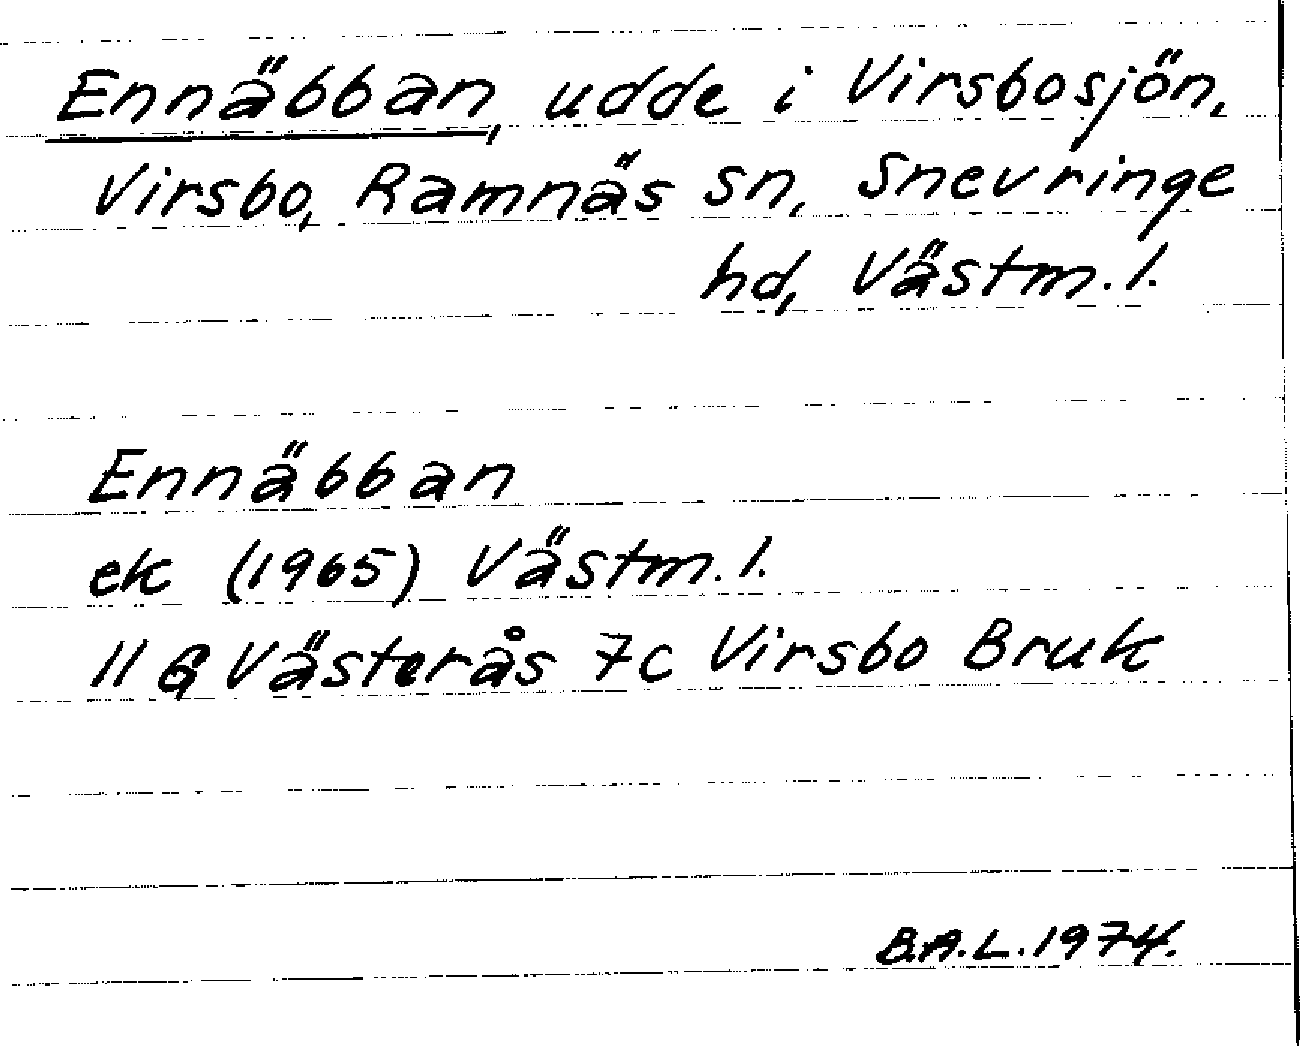 Ennäbban, udde i Virsbosjön,
Virsbo, Ramnäs sn, Snevringe
hd, Västm. l.
Ennäbban
ek (1965) Västm. l.
11 G Västerås 7c Virsbo Bruk
B.A.L. 1974.